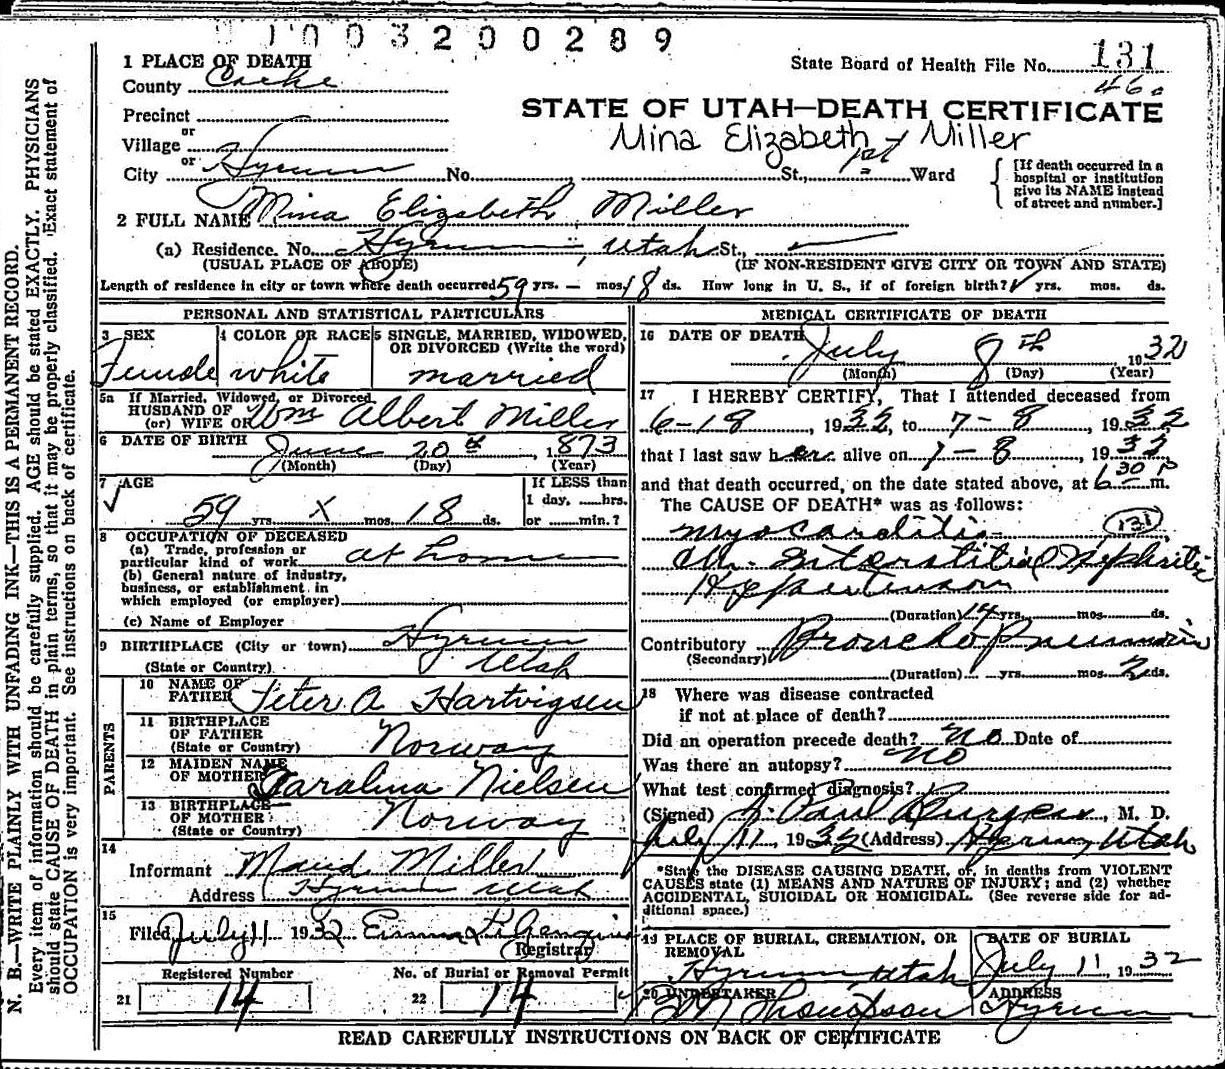 003200289
1 PLACE OF DEATH
State Board of Health File No. 131
County Cache
460
STATE OF UTAH—DEATH CERTIFICATE
Precinct
or
Village
Mina Elizabeth Miller
or
City Hyrum No. St., 1st Ward
[If death occurred in a
hospital or institution
give its NAME instead
of street and number.]
2 FULL NAME Mina Elizabeth Miller
(a) Residence. No. Hyrum, Utah St.,
(USUAL PLACE OF ABODE) (IF NON-RESIDENT GIVE CITY OR TOWN AND STATE)
Length of residence in city or town where death occurred 59 yrs. — mos. 18 ds. How long in U. S., if of foreign birth? yrs. mos. ds.
PERSONAL AND STATISTICAL PARTICULARS
3 SEX 4 COLOR OR RACE 5 SINGLE, MARRIED, WIDOWED,
OR DIVORCED (Write the word)
Female white married
5a If Married, Widowed, or Divorced
HUSBAND OF
(or) WIFE OF Wm Albert Miller
6 DATE OF BIRTH June 20th, 1873
(Month) (Day) (Year)
7 AGE If LESS than
1 day, ......hrs.
59 yrs. X mos. 18 ds. or ......min.?
8 OCCUPATION OF DECEASED
(a) Trade, profession or
particular kind of work at home
(b) General nature of industry,
business, or establishment in
which employed (or employer)
(c) Name of Employer
9 BIRTHPLACE (City or town) Hyrum
(State or Country) Utah
PARENTS
10 NAME OF
FATHER Peter A Hartvigsen
11 BIRTHPLACE
OF FATHER
(State or Country) Norway
12 MAIDEN NAME
OF MOTHER Karalina Nielsen
13 BIRTHPLACE
OF MOTHER
(State or Country) Norway
14
Informant Maud Miller
Address Hyrum Utah
15
Filed July 11 1932
Registrar
Registered Number No. of Burial or Removal Permit
21 14 22 14
MEDICAL CERTIFICATE OF DEATH
16 DATE OF DEATH
July 8th 1932
(Month) (Day) (Year)
17 I HEREBY CERTIFY, That I attended deceased from
6-18, 1932, to 7-8, 1932
that I last saw her alive on 7-8, 1932
and that death occurred, on the date stated above, at 6 30 P m.
The CAUSE OF DEATH* was as follows:
Myocarditis 131
Ch. Interstitial Nephritis
Hypertension
(Duration) 14 yrs. mos. ds.
Contributory Broncho Pneumonia
(Secondary)
(Duration) yrs. mos. 2 ds.
18 Where was disease contracted
if not at place of death?
Did an operation precede death? No Date of
Was there an autopsy? No
What test confirmed diagnosis?
(Signed) J. Paul Burgess, M. D.
July 11 1932 (Address) Hyrum Utah
*State the DISEASE CAUSING DEATH, or, in deaths from VIOLENT
CAUSES state (1) MEANS AND NATURE OF INJURY; and (2) whether
ACCIDENTAL, SUICIDAL OR HOMICIDAL. (See reverse side for ad-
ditional space.)
19 PLACE OF BURIAL, CREMATION, OR
REMOVAL
Hyrum Utah
DATE OF BURIAL
July 11 1932
20 UNDERTAKER Thompson
ADDRESS
Hyrum
READ CAREFULLY INSTRUCTIONS ON BACK OF CERTIFICATE
N. B.—WRITE PLAINLY WITH UNFADING INK—THIS IS A PERMANENT RECORD.
Every item of information should be carefully supplied. AGE should be stated EXACTLY. PHYSICIANS
should state CAUSE OF DEATH in plain terms, so that it may be properly classified. Exact statement of
OCCUPATION is very important. See instructions on back of certificate.